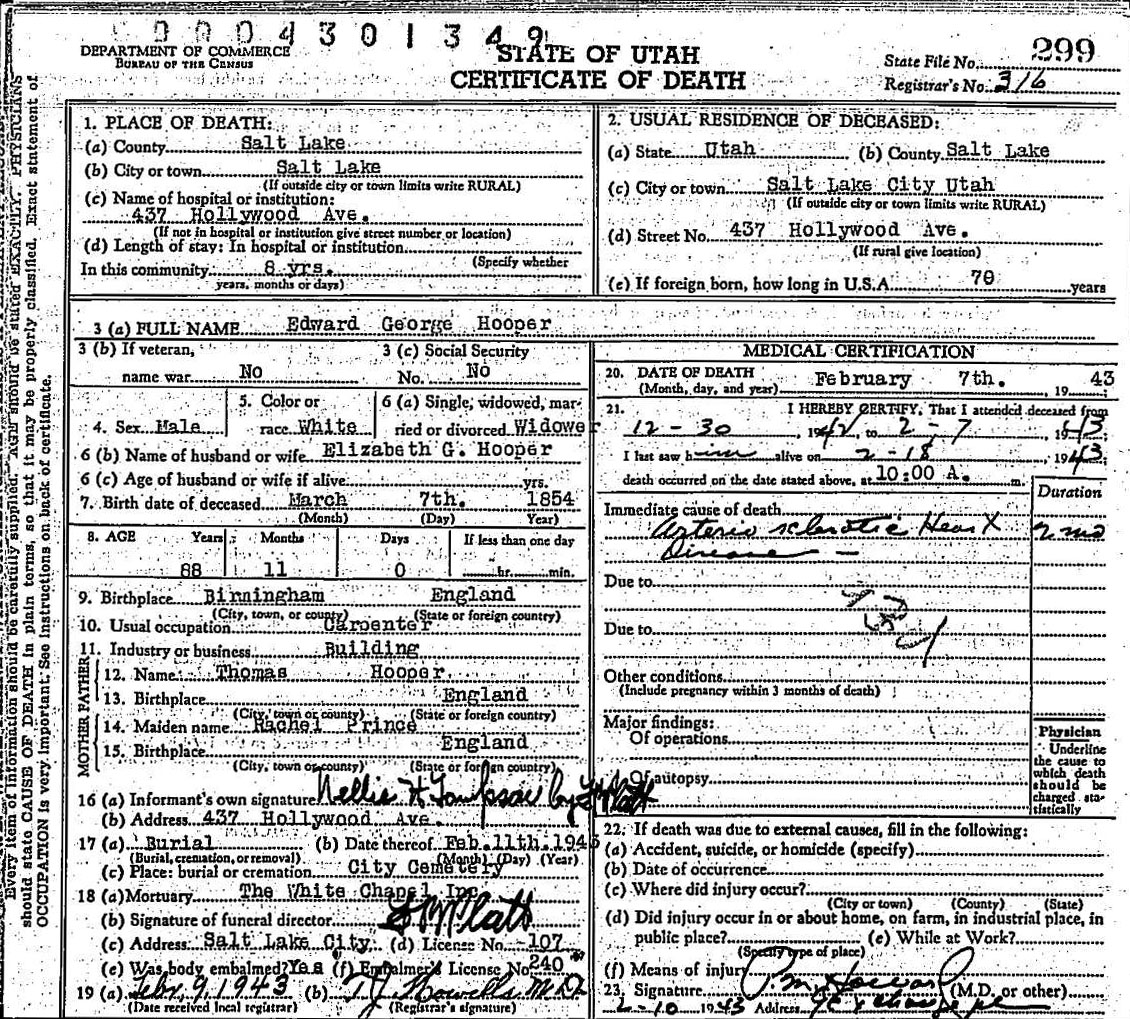 0004301349
DEPARTMENT OF COMMERCE
BUREAU OF THE CENSUS
STATE OF UTAH
CERTIFICATE OF DEATH
State File No. 299
Registrar's No. 316
Every item of information should be carefully supplied. AGE should be stated EXACTLY. PHYSICIANS
should state CAUSE OF DEATH in plain terms, so that it may be properly classified. Exact statement of
OCCUPATION is very important. See instructions on back of certificate.
1. PLACE OF DEATH:
(a) County Salt Lake
(b) City or town Salt Lake
(If outside city or town limits write RURAL)
(c) Name of hospital or institution:
437 Hollywood Ave.
(If not in hospital or institution give street number or location)
(d) Length of stay: In hospital or institution
(Specify whether
In this community 8 yrs.
years, months or days)
2. USUAL RESIDENCE OF DECEASED:
(a) State Utah (b) County Salt Lake
(c) City or town Salt Lake City Utah
(If outside city or town limits write RURAL)
(d) Street No. 437 Hollywood Ave.
(If rural give location)
(e) If foreign born, how long in U.S.A. 70 years
3 (a) FULL NAME Edward George Hooper
3 (b) If veteran, name war No
3 (c) Social Security No. No
4. Sex Male
5. Color or race White
6 (a) Single, widowed, married or divorced Widower
6 (b) Name of husband or wife Elizabeth G. Hooper
6 (c) Age of husband or wife if alive yrs.
7. Birth date of deceased March 7th. 1854
(Month) (Day) Year)
8. AGE Years Months Days If less than one day
88 11 0 hr. min.
9. Birthplace Birmingham England
(City, town, or county) (State or foreign country)
10. Usual occupation Carpenter
11. Industry or business Building
FATHER
12. Name Thomas Hooper
13. Birthplace England
(City, town or county) (State or foreign country)
MOTHER
14. Maiden name Rachel Prince
15. Birthplace England
(City, town or county) (State or foreign country)
16 (a) Informant's own signature Nellie H by
(b) Address 437 Hollywood Ave.
17 (a) Burial (b) Date thereof Feb. 11th. 1943
(Burial, cremation, or removal) (Month) (Day) (Year)
(c) Place: burial or cremation City Cemetery
18 (a) Mortuary The White Chapel Inc
(b) Signature of funeral director
(c) Address Salt Lake City. (d) License No. 107
(e) Was body embalmed? Yes (f) Embalmer's License No. 240
19 (a) Feb. 9, 1943 (b) M.D.
(Date received local registrar) (Registrar's signature)
MEDICAL CERTIFICATION
20. DATE OF DEATH
(Month, day, and year) February 7th. , 19 43
21. I HEREBY CERTIFY, That I attended deceased from
12-30, 1942, to 2-7, 1943
I last saw him alive on 2-18, 1943
death occurred on the date stated above, at 10:00 A. m.
Duration
Immediate cause of death
Arterio sclerotic Heart 2 mo
Disease
Due to
Due to
Other conditions
(Include pregnancy within 3 months of death)
Major findings:
Of operations
Of autopsy
Physician
Underline
the cause to
which death
should be
charged sta-
tistically
22. If death was due to external causes, fill in the following:
(a) Accident, suicide, or homicide (specify)
(b) Date of occurrence
(c) Where did injury occur?
(City or town) (County) (State)
(d) Did injury occur in or about home, on farm, in industrial place, in
public place? (e) While at Work?
(Specify type of place)
(f) Means of injury
23. Signature (M.D. or other)
2-10 1943 Address